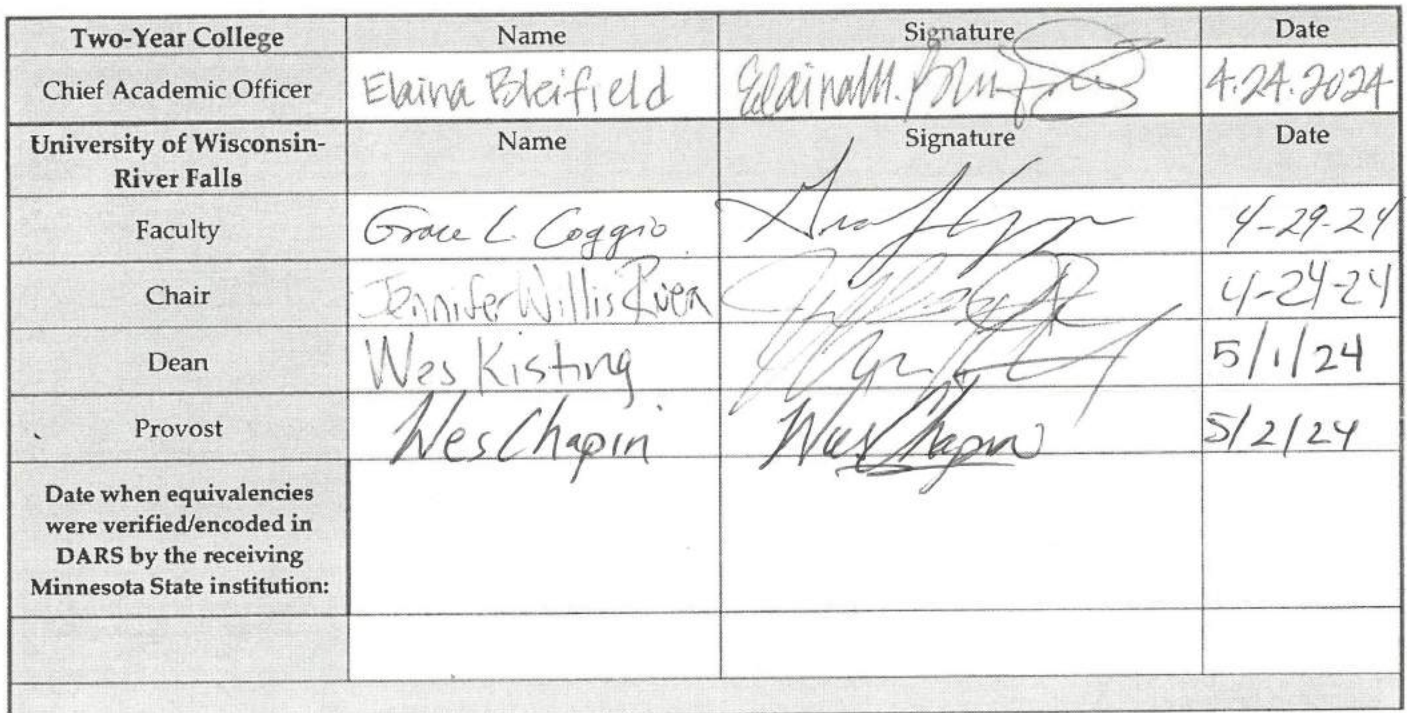 Two-Year College Name Signature Date
Chief Academic Officer Elaina Bleifield Elaina M. 4.24.2024
University of Wisconsin- Name Signature Date
River Falls
Faculty Grace L. Coggio 4-29-24
Chair Jennifer Willis Rivera 4-24-24
Dean Wes Kisting 5/1/24
Provost Wes Chapin Wes Chapin 5/2/24
Date when equivalencies
were verified/encoded in
DARS by the receiving
Minnesota State institution: